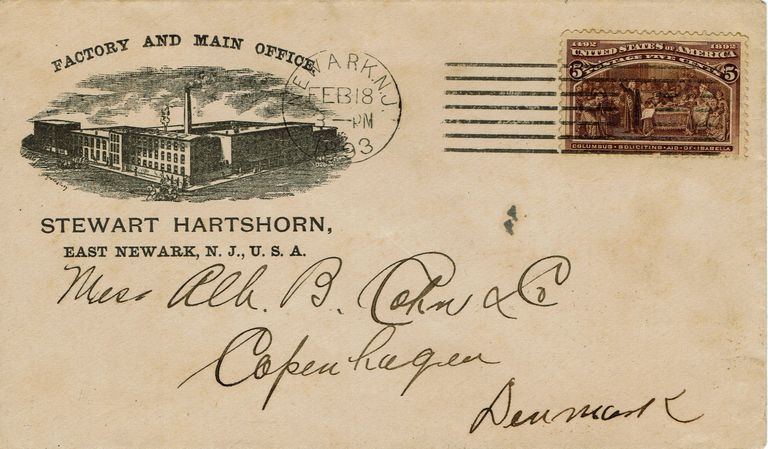 FACTORY AND MAIN OFFICE.
NEWARK N.J.
FEB 18
3 - PM
1893
1492 1892
UNITED STATES OF AMERICA
5 POSTAGE FIVE CENTS 5
COLUMBUS · SOLICITING · AID · OF · ISABELLA
STEWART HARTSHORN,
EAST NEWARK, N. J., U. S. A.
Mess Alb. B. Cohn & Co
Copenhagen
Denmark